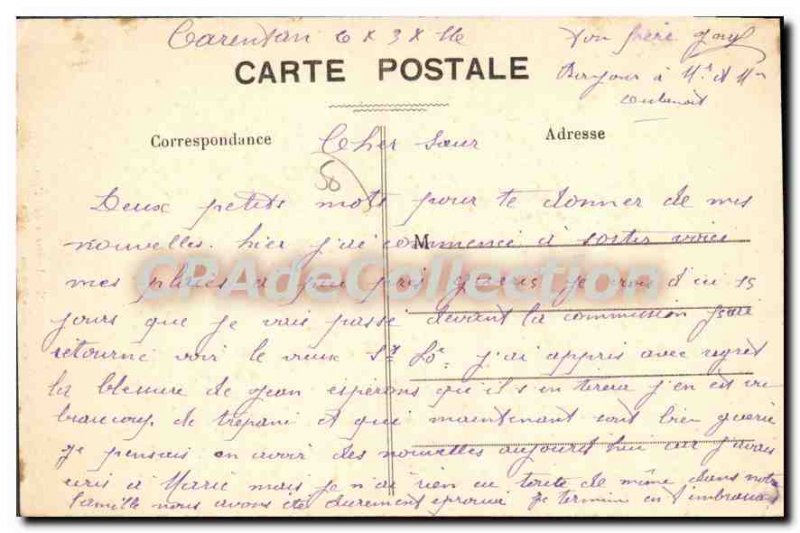 Carentan 6 x 3 x 16
Ton frère
CARTE POSTALE
Bonjour à Mr et Mm
Correspondance
Adresse
Cher Sœur
58
Deux petits mots pour te donner de mes
nouvelles. hier j'ai commencé à sortir voici
M
mes plaies a peu près gueris je crois d'ici 15
CPAdeCollection
jours que je vais passé devant la commission
retourné voir le vieux St Lô. j'ai appris avec regret
la blessure de Jean espérons qu'il s'en tirera j'en ait vu
beaucoup de trépani et qui maintenant sont bien guerie
je pensais en avoir des nouvelles aujourd'hui car j'avais
écris à Marie mais je n'ai rien eu tout de même dans notre
famille nous avons été durement éprouvé Je termine en t'embrassant